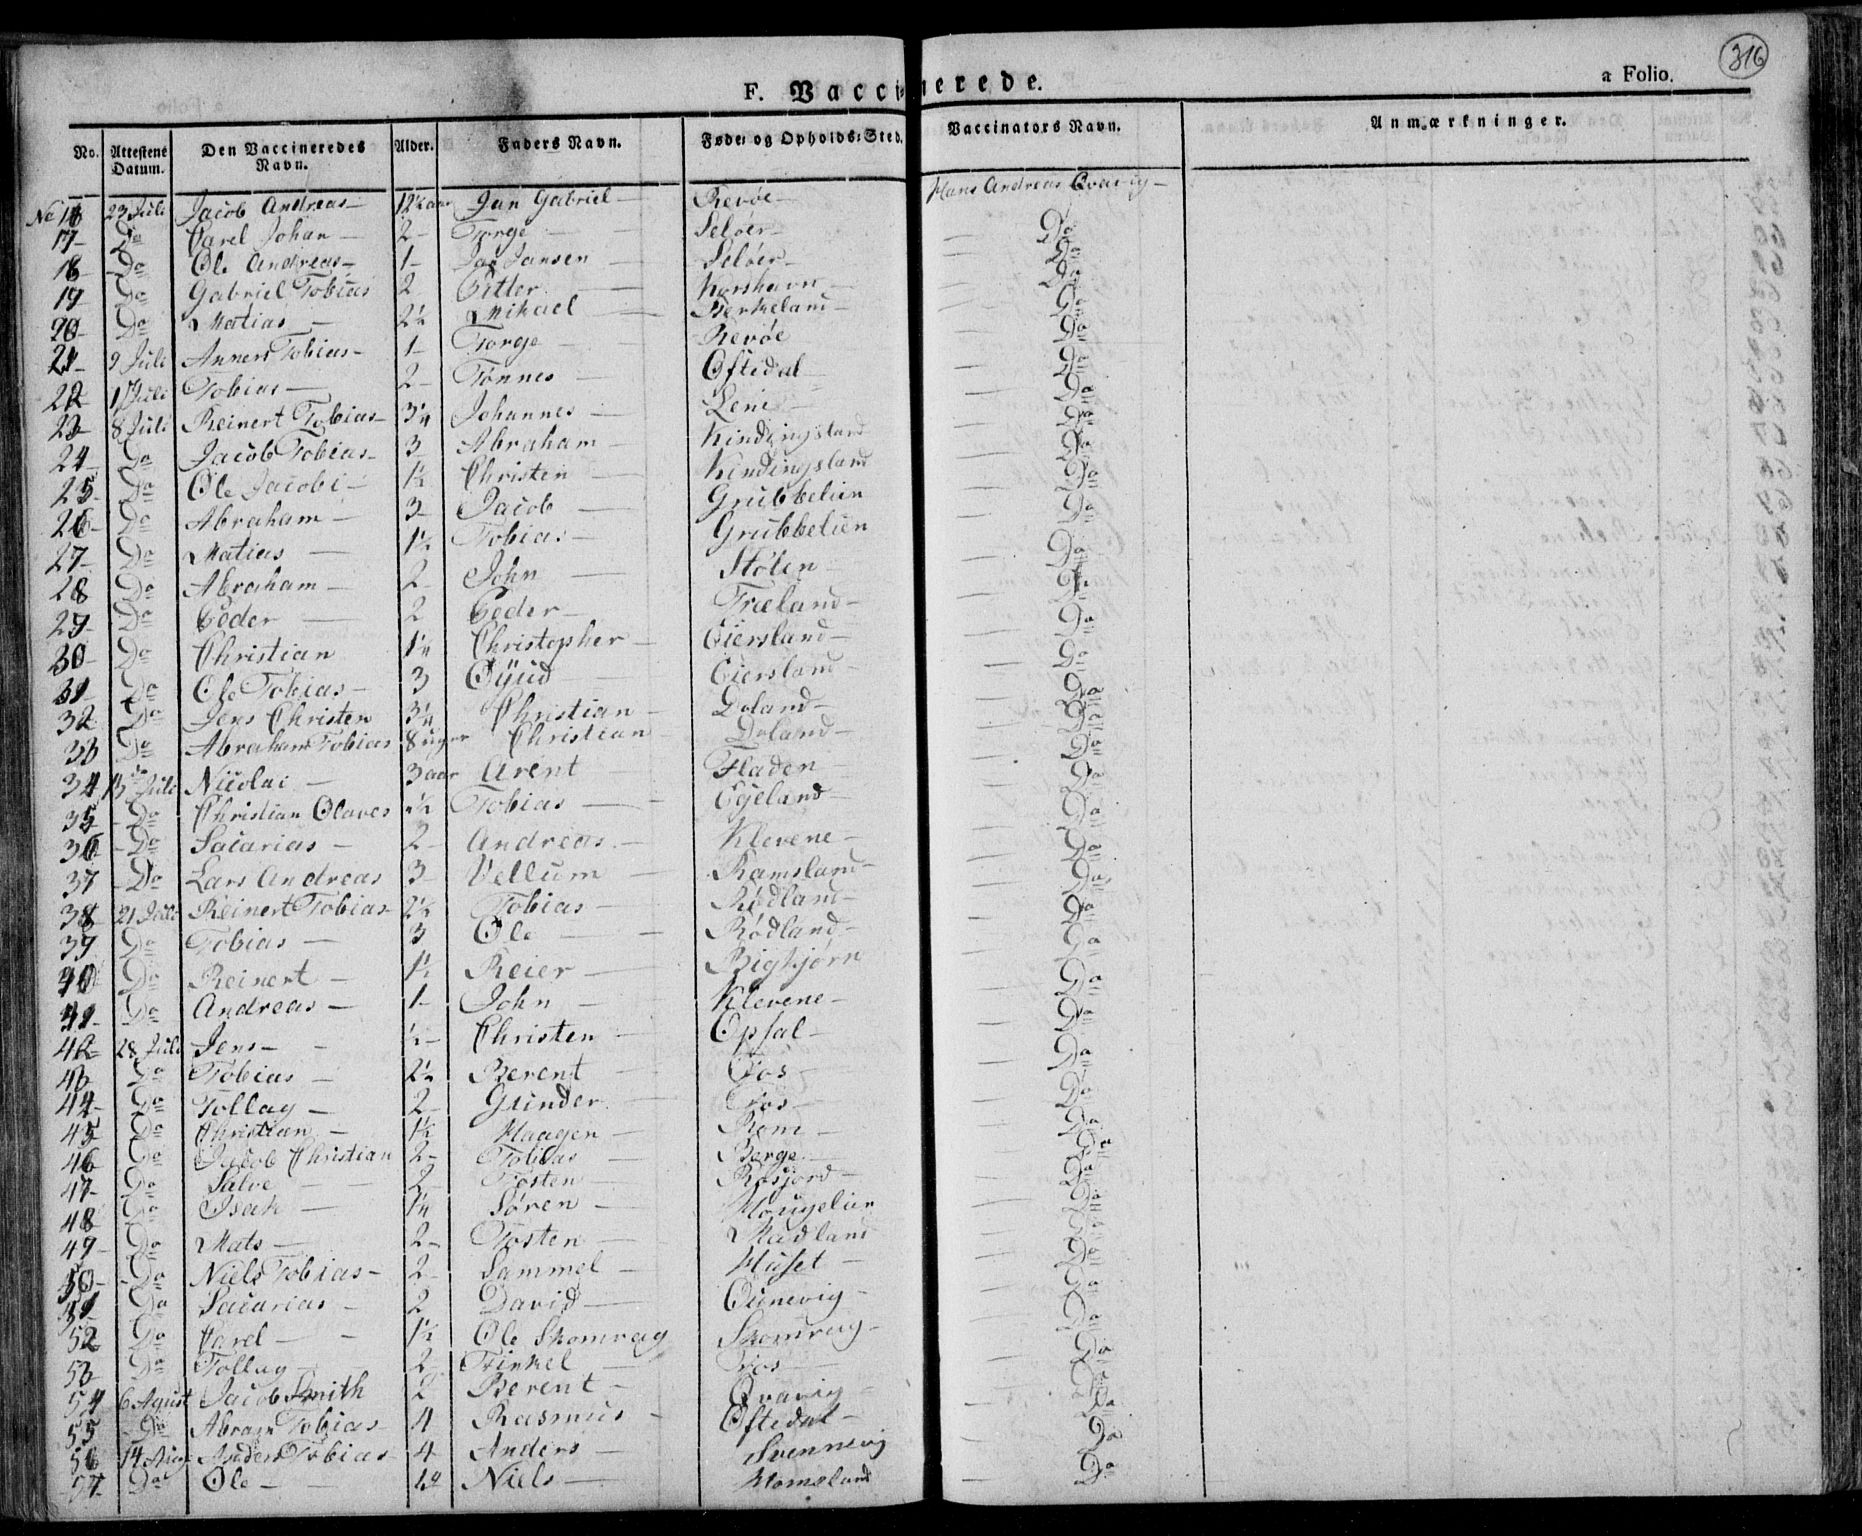 316
F. Vaccinerede. a Folio.
No. Attestens Datum. Den Vaccineredes Navn. Alder. Faders Navn. Føde- og Opholds-Sted. Vaccinators Navn. Anmærkninger.
No 16 23 Juli Jacob Andreas 12½ aar Jan Gabriel Revøe Hans Andreas Qvavig
17 Do Carel Johan 2 Torge Seløer Do
18 Do Ole Andreas 1 Jansen Seløer Do
19 Do Gabriel Tobias 2 Petter Korshavn Do
20 Do Matias 2½ Mikael Berkeland Do
21 9 Juli Anners Tobias 1 Torge Revøe Do
22 Juli Tobias 2 Tønnes Oftedal Do
23 8 Juli Reinert Tobias 3¼ Johannes Lene Do
24 Do Jacob Tobias 3 Abraham Kindingsland Do
25 Do Ole Jacobi 1½ Christen Kindingsland Do
26 Do Abraham 3 Jacob Grubbelien Do
27 Do Matias 1½ Tobias Grubbelien Do
28 Do Abraham 2 John Stølen Do
29 Do Peder 2 Peder Træland Do
30 Do Christian 1¼ Christopher Eiersland Do
31 Do Ole Tobias 3 Eiersland Do
32 Do Jens Christen 3¼ Christian Doland Do
33 Do Abraham Tobias 8 uger Christian Doland Do
34 13 Juli Nicolai 3 aar Arent Fladen Do
35 Do Christian Olaves ½ Tobias Egeland Do
36 Do Sacarias 2 Andreas Klevene Do
37 Do Lars Andreas 3 Vellum Ramsland Do
38 21 Juli Reinert Tobias 2½ Tobias Rødland Do
39 Do Tobias 3 Ole Rødland Do
40 Do Reinert 1½ Reier Bigkjørn Do
41 Do Andreas 1 John Klevene Do
42 28 Juli Jens ½ Christen Opsal Do
43 Do Tobias 2½ Berent Fos Do
44 Do Tollag 2 Gunder Fos Do
45 Do Christian 1½ Haagen Rom Do
46 Do Jacob Christian 2 Tobias Berge Do
47 Do Salve 2 Tosten Rosfjord Do
48 Do Isak 1¼ Søren Hougelien Do
49 Do Mats 2 Tosten Madland Do
50 Do Niels Tobias 2 Sammel Huset Do
51 Do Sacarias 2 David Ounevig Do
52 Do Carel 1½ Ole Skomrag Skomrag Do
53 Do Tollag 2 Trinkel Fos Do
54 6 Agust Jacob Smith 2 Berent Qvavig Do
55 Do Abram Tobias 4 Rasmus Oftedal Do
56 14 Aug Anders Tobias 4 Anders Svennevig Do
57 Do Ole Niels Homsland Do